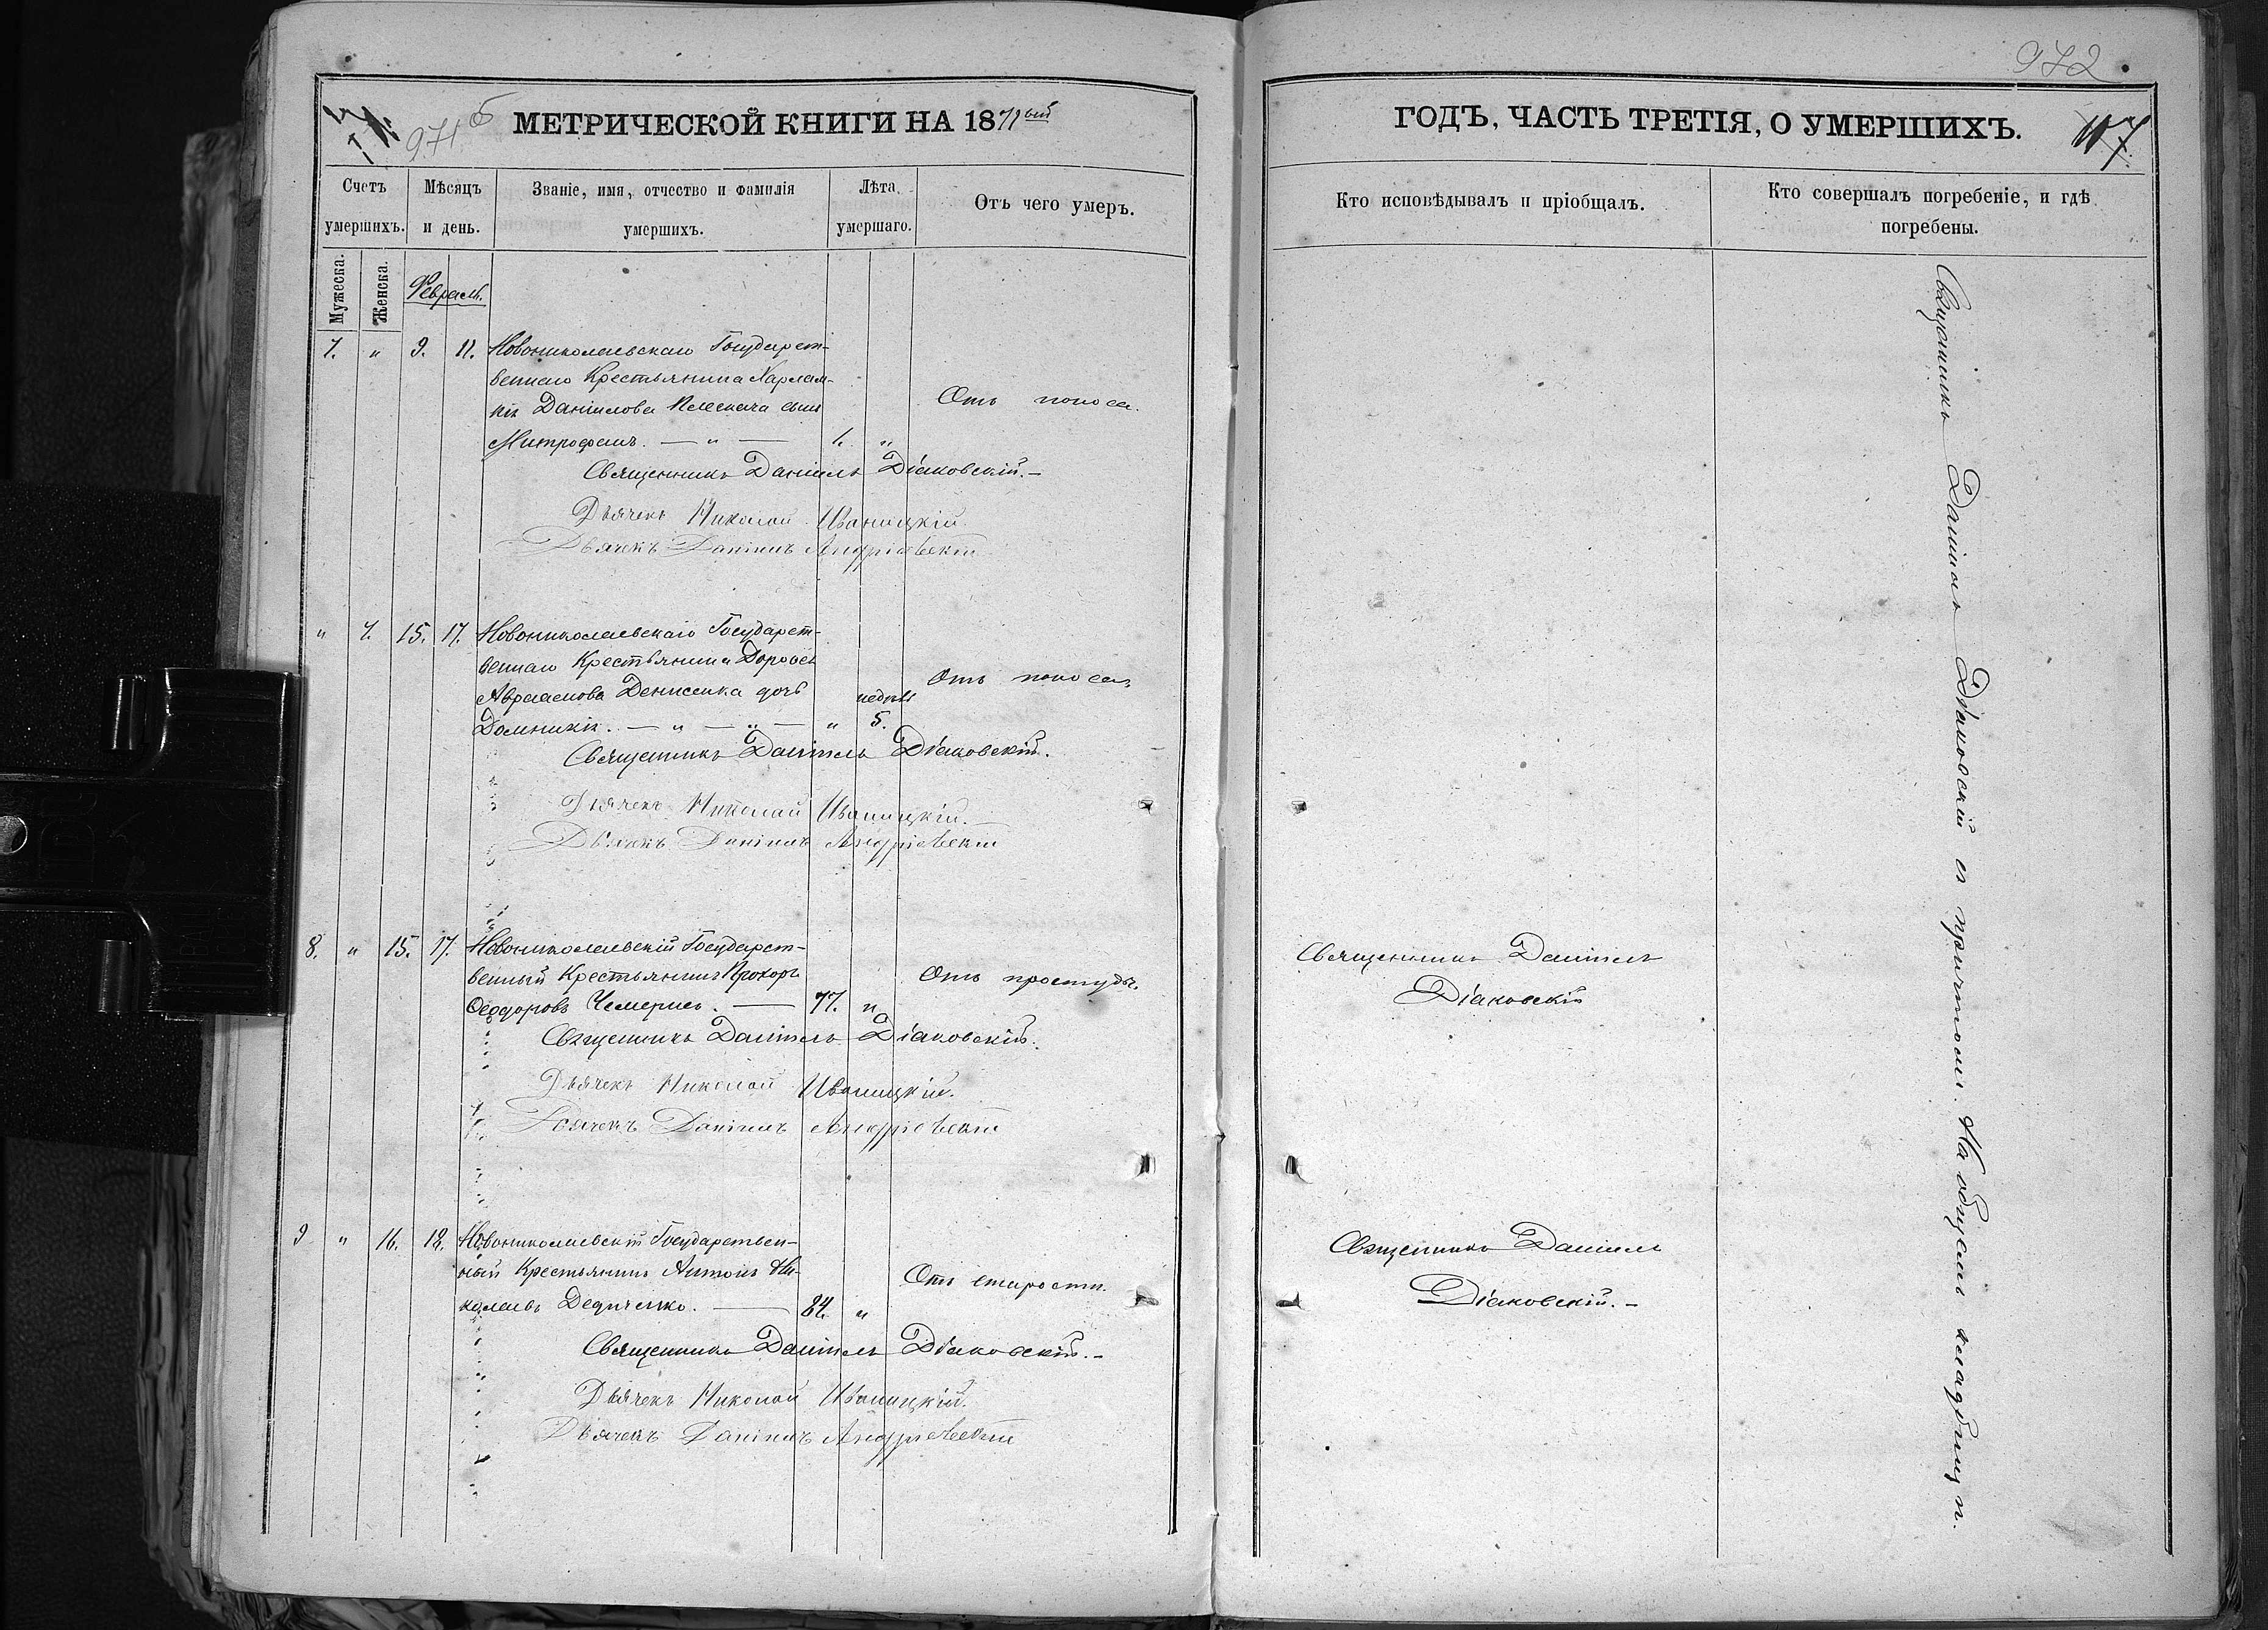 971 б МЕТРИЧЕСКОЙ КНИГИ НА 1871ый
Счетъ умершихъ.
Мужеска.
Женска.
Мѣсяцъ и день.
Званіе, имя, отчество и фамилія умершихъ.
Лѣта умершаго.
Отъ чего умеръ.
Февраль.
7. " 9. 11. Новониколаевскаго Государст-
веннаго Крестьянина Харлам-
пія Даніилова сынъ
Митрофанъ. — " — 1. "
Отъ поноса.
Священникъ Даніилъ Діаковскій.—
Дьячекъ Николай Иваницкій.
Дьячекъ Даніилъ Андріевскій
" 4. 15. 17. Новониколаевскаго Государст-
веннаго Крестьянина Дорофея
Авраамова Денисенка дочь
Домникія. — " — " — " недель 5.
Отъ поноса.
Священникъ Даніилъ Діаковскій.
Дьячекъ Николай Иваницкій.—
Дьячекъ Даніилъ Андріевскій
8. " 15. 17. Новониколаевскій Государст-
венный Крестьянинъ Прохоръ
Ѳеодоровъ Чемерисъ. — 77. "
Отъ простуды.
Священникъ Даніилъ Діаковскій.
Дьячекъ Николай Иваницкій.
Дьячекъ Даніилъ Андріевскій
9 " 16. 18. Новониколаевскій Государствен-
ный Крестьянинъ Антонъ Ни-
колаевъ Дедиченко. — 84. "
Отъ старости.
Священникъ Даніилъ Діаковскій.—
Дьячекъ Николай Иваницкій.
Дьячекъ Даніилъ Андріевскій
972
ГОДЪ, ЧАСТЬ ТРЕТІЯ, О УМЕРШИХЪ.
Кто исповѣдывалъ и пріобщалъ.
Кто совершалъ погребеніе, и гдѣ погребены.
Священникъ Даніилъ
Діаковскій
Священникъ Даніилъ
Діаковскій.—
Священникъ Даніилъ Діаковскій съ причтомъ. На общемъ кладбищѣ.